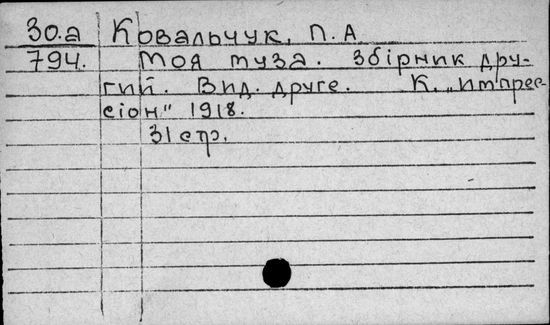 30.а Ковальчук, П. А
794. Моя муза. Збірник дру-
гий. Вид. друге. К. „Импрес-
сіон" 1918.
31 стр.